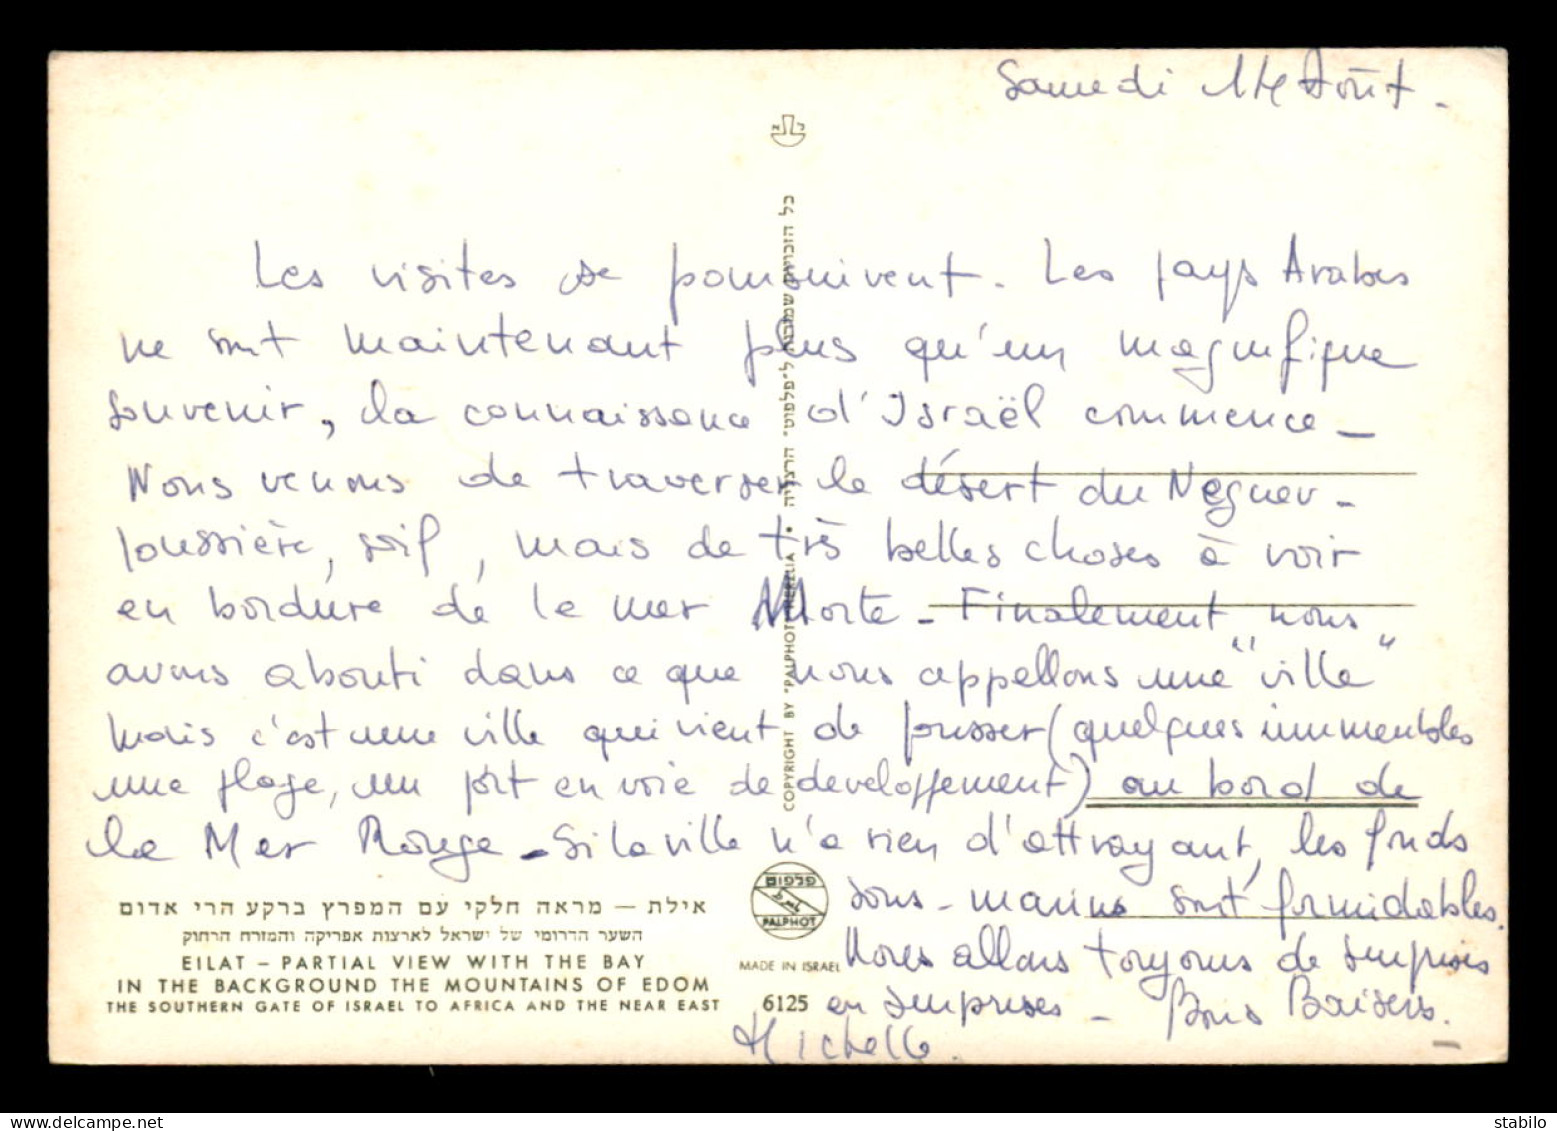 Samedi 14 Août.
Les visites se poursuivent. Les pays Arabes
ne sont maintenant plus qu'un magnifique
souvenir, la connaissance d'Israël commence -
Nous venons de traverser le désert du Neguev -
poussière, soif, mais de très belles choses à voir
en bordure de la mer Morte - Finalement nous
avons abouti dans ce que nous appellons une "ville"
mais c'est une ville qui vient de pousser (quelques immeubles
une plage, un port en voie de developpement) au bord de
la Mer Rouge - Si la ville n'a rien d'attrayant, les fonds
sous-marins sont formidables.
Nous allons toujours de surprises
en surprises - Bons Baisers.
Michelle.
כל הזכויות שמורות ל-"פלפוט" הרצליה • COPYRIGHT BY "PALPHOT" HERZLIA
אילת – מראה חלקי עם המפרץ ברקע הרי אדום
השער הדרומי של ישראל לארצות אפריקה והמזרח הרחוק
EILAT – PARTIAL VIEW WITH THE BAY
IN THE BACKGROUND THE MOUNTAINS OF EDOM
THE SOUTHERN GATE OF ISRAEL TO AFRICA AND THE NEAR EAST
פלפוט
PALPHOT
MADE IN ISRAEL
6125
delcampe.net
stabilo